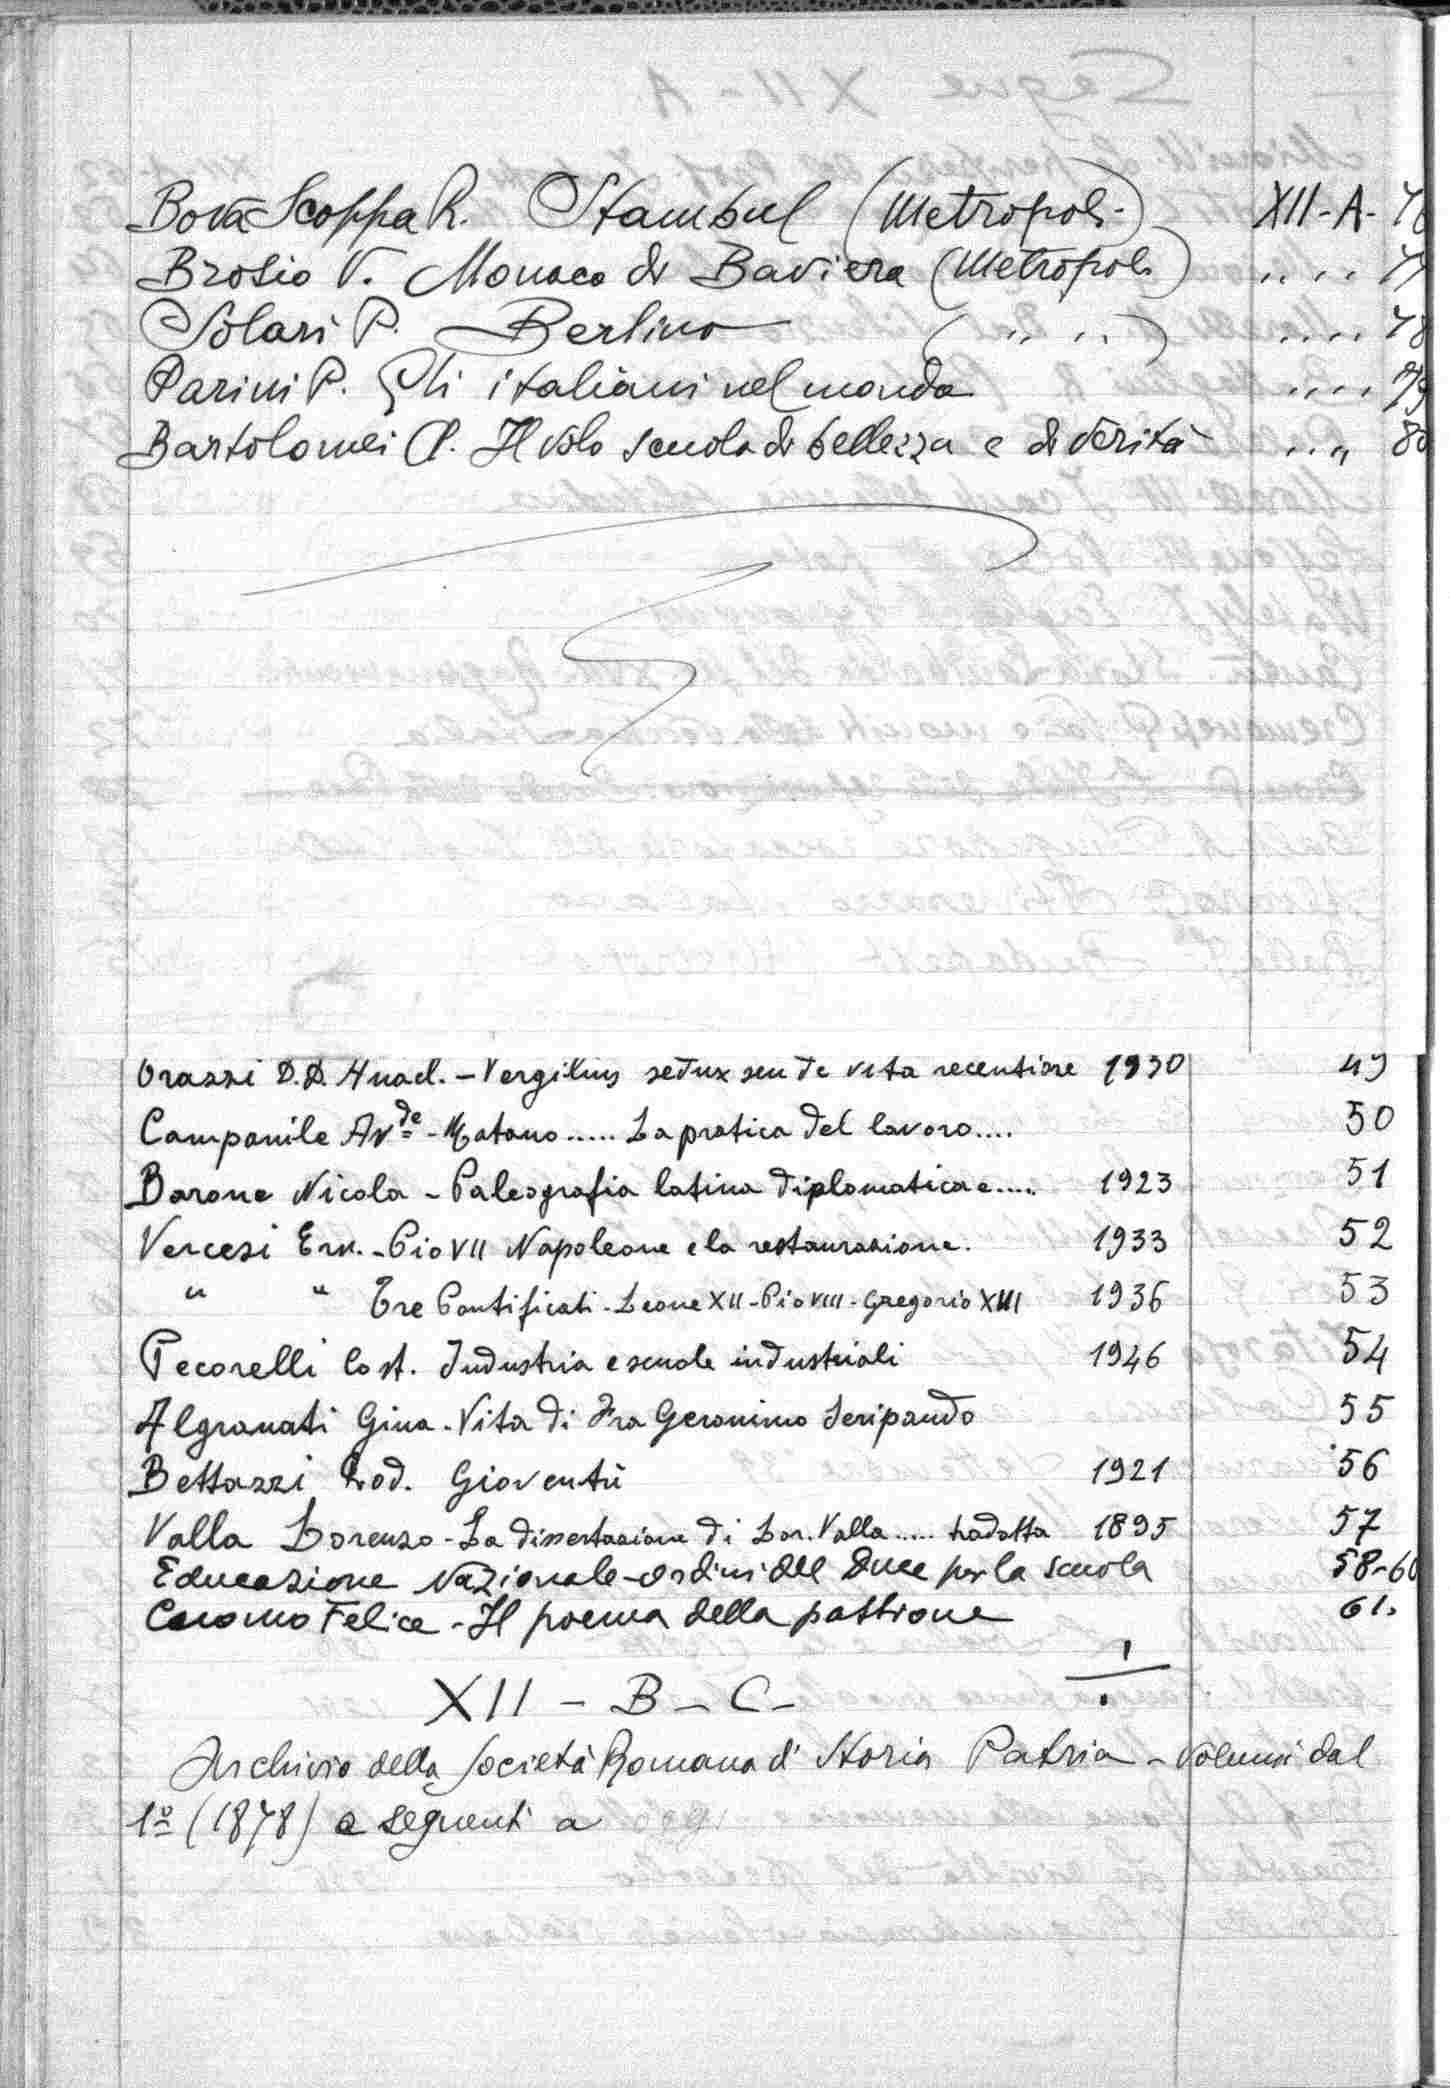 Bova Scoppa R. Stambul (Metropoli) XII-A-76
Brosio V. Monaco di Baviera (Metropoli) .... 77
Solari P. Berlino ( .. .. ) .... 78
Parini P. Gli italiani nel mondo .... 79
Bartolomei A. Il volo scuola di bellezza e di verità .... 80
Orazzi D.D. Anacl. - Vergilius redux seu de vita recentiore 1930 49
Campanile Av.de - Matano ..... La pratica del lavoro .... 50
Barone Nicola - Paleografia latina diplomatica e ..... 1923 51
Vercesi Ern. - Pio VII Napoleone e la restaurazione. 1933 52
" " Tre Pontificati - Leone XII - Pio VIII - Gregorio XVI 1936 53
Pecorelli Cost. Industria e scuole industriali 1946 54
Algranati Gina - Vita di Fra Geronimo Seripando 55
Bettazzi Rod. Gioventù 1921 56
Valla Lorenzo - La dissertazione di Lor. Valla ..... tradotta 1895 57
Educazione Nazionale - ordini del Duce per la scuola 58-60
Cuomo Felice - Il poema della passione 61.
XII - B - C -
Archivio della Società Romana di Storia Patria - Volumi dal
1º (1878) e seguenti a